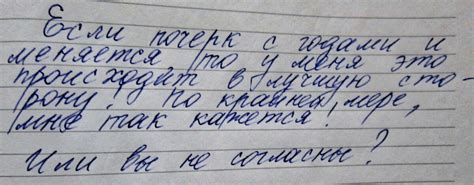 Если почерк с годами и
меняется то у меня это
происходит в лучшую сто-
рону. По крайней мере,
мне так кажется!
Или вы не согласны?